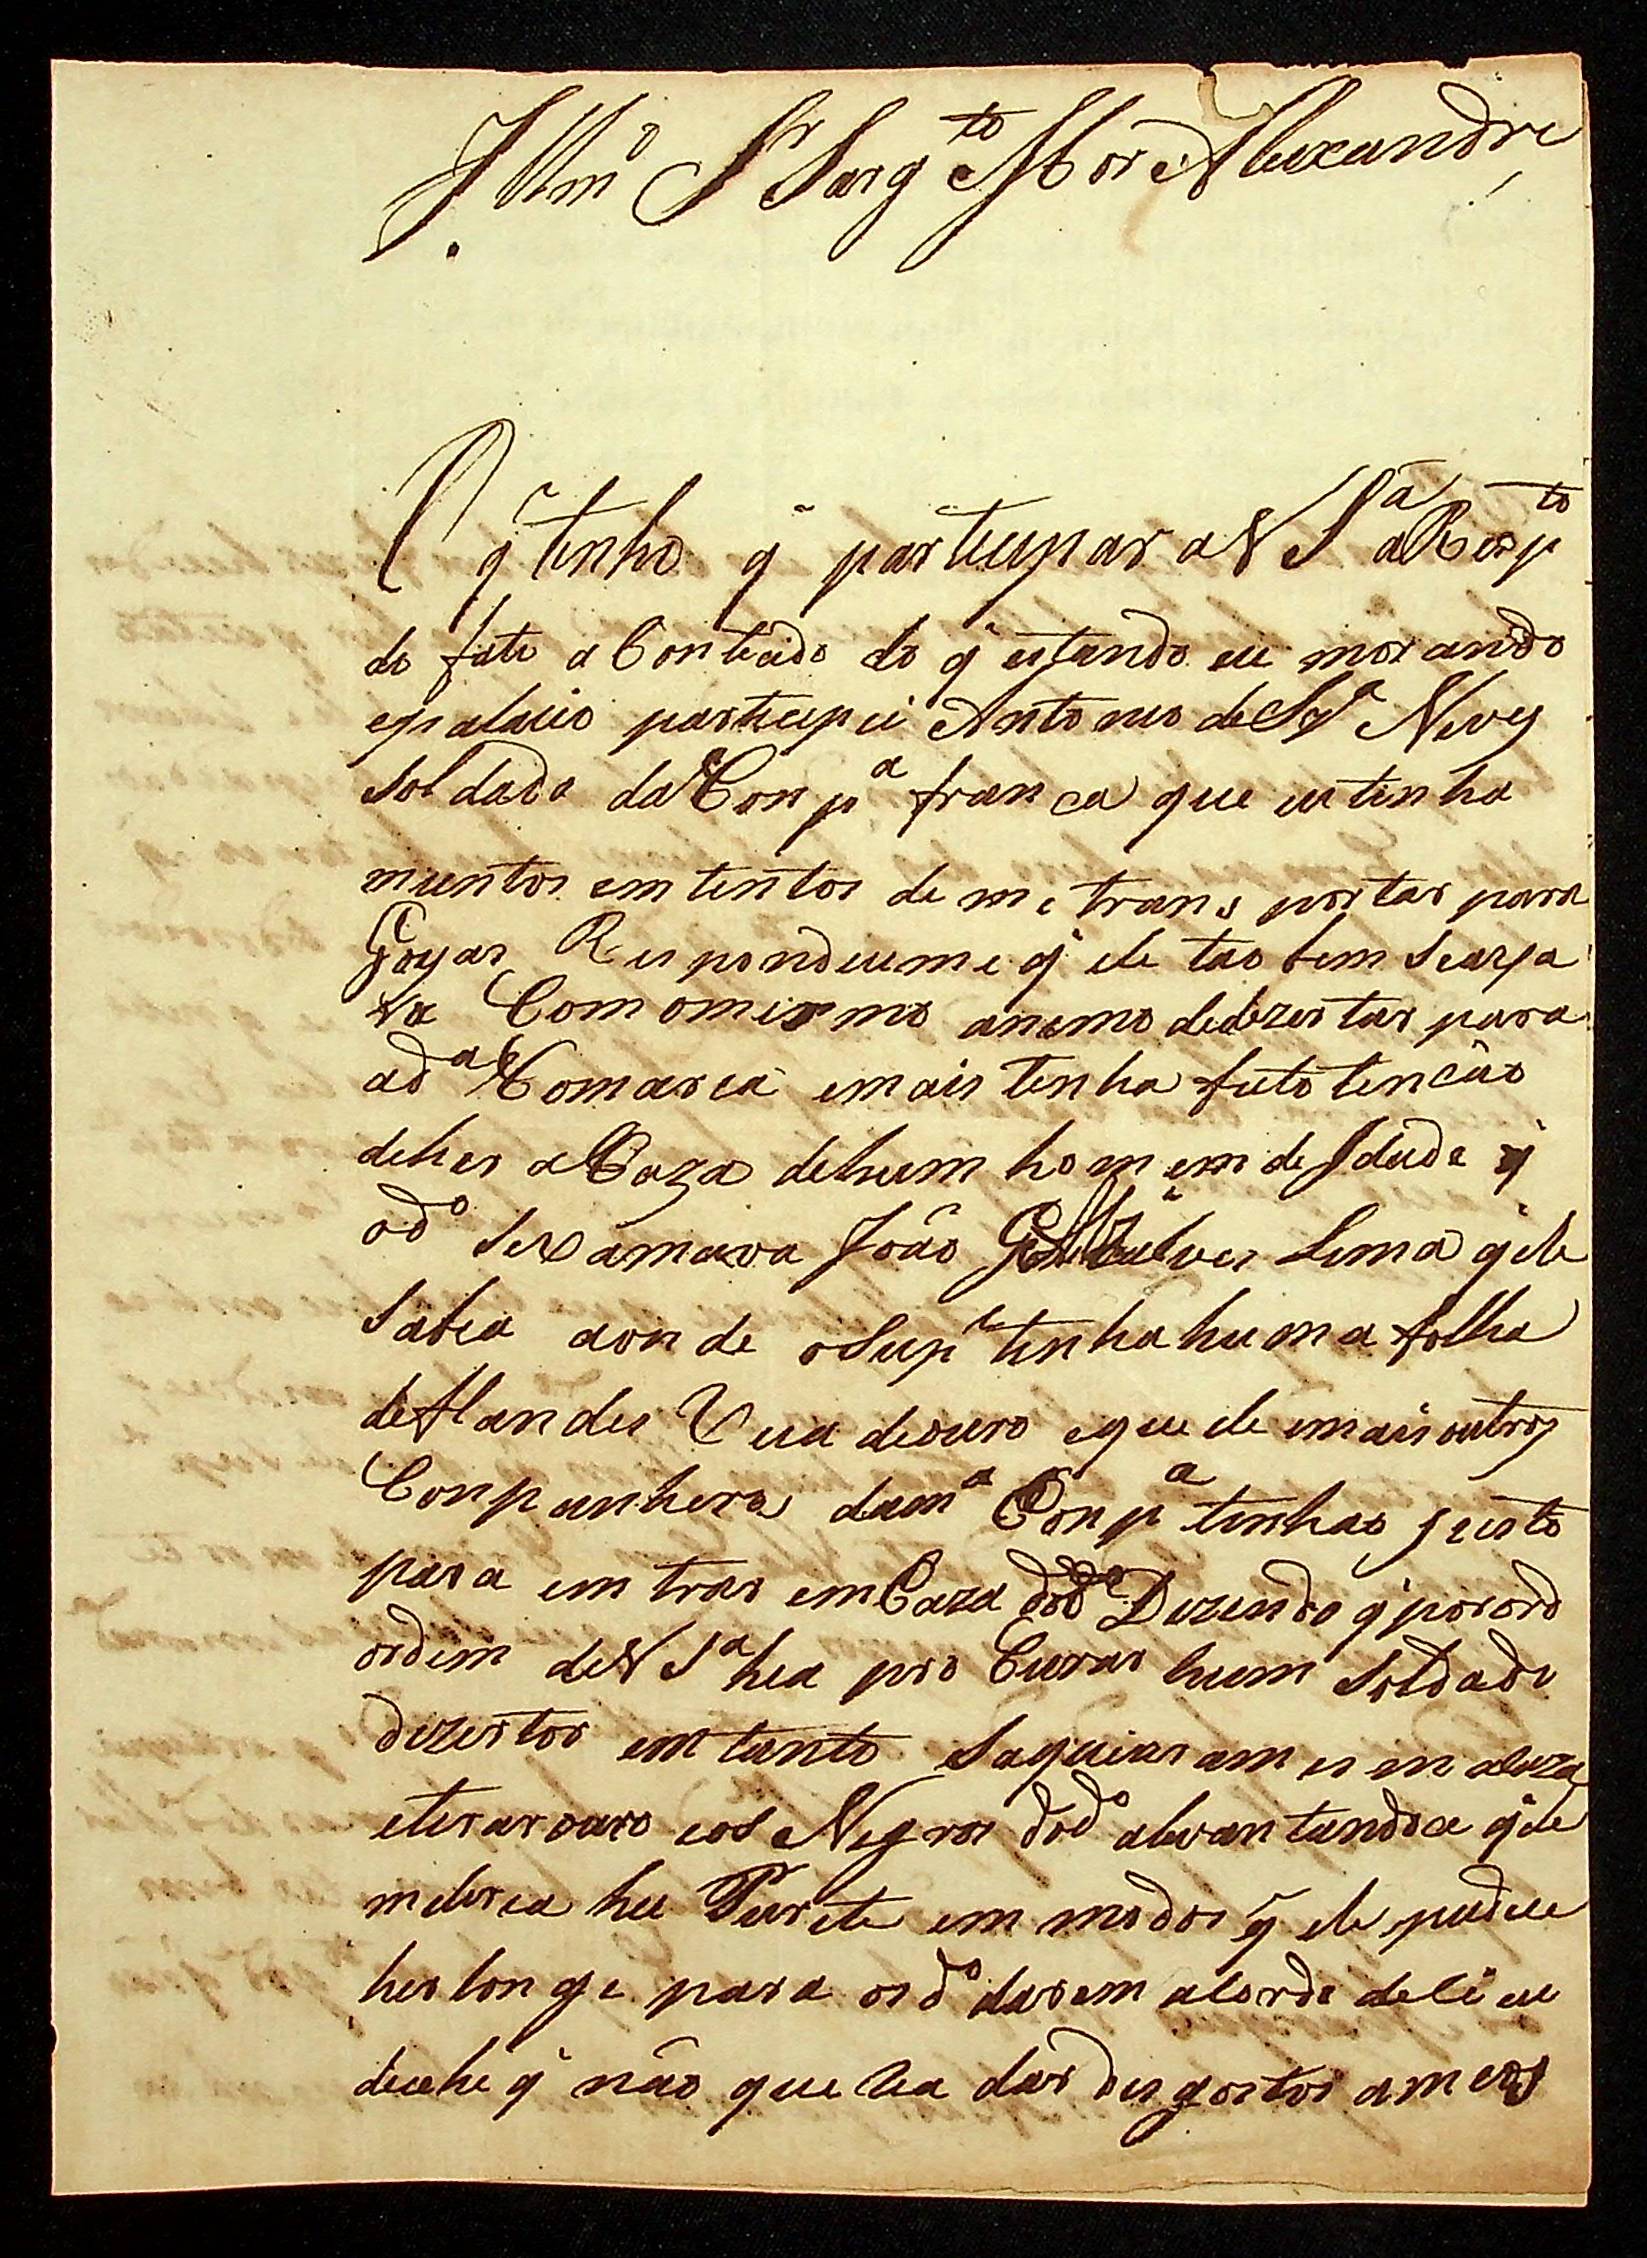 Illmo Sr Sargto Mor Alexandre
O q̃ tenho q̃ partiupar a V Sa a Respto
do fato aConteido do q̃ estando eu morando
partiupei Antonio de Sza Neves
Soldado da Conpa franca que eu tinha
muntos emtentos de me trans portar para
Goyas Respondeume q̃ ele tao bem Seaxa
va Com omesmo anemo dedezertar para
ada Comarca emais tinha feito tencão
deher a Caza dehum homem de Idade q̃
odo Sexamava João Lima q̃ ele
Sabia aonde oSupe tinha huma folha
deflandes Xeia deouro eque ele emais outros
Conpanheros dama Conpa tinhão justo
para emtrar emCaza dodo Dizendo q̃ por ord
ordem deV Sa hia pro Curar hum Soldado
dezertor emtanto Saquiaram es
etirar ouro eos Negros dodo alevantandoce q̃ ele
meteria hu em modos q̃ ele pudece
her longe para osdo darem acordo deci eu
dicelhe q̃ não queria dar desgostos ameos